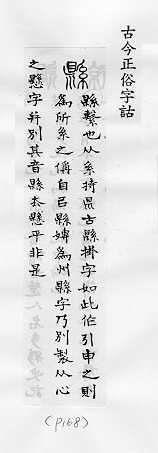 古今正俗字詁
縣
縣繫也从系持県古縣掛字如此作引申之則
為所系之偁自邑縣嬗為州縣字乃別製从心
之懸字并別其音縣去懸平非是
(P168)